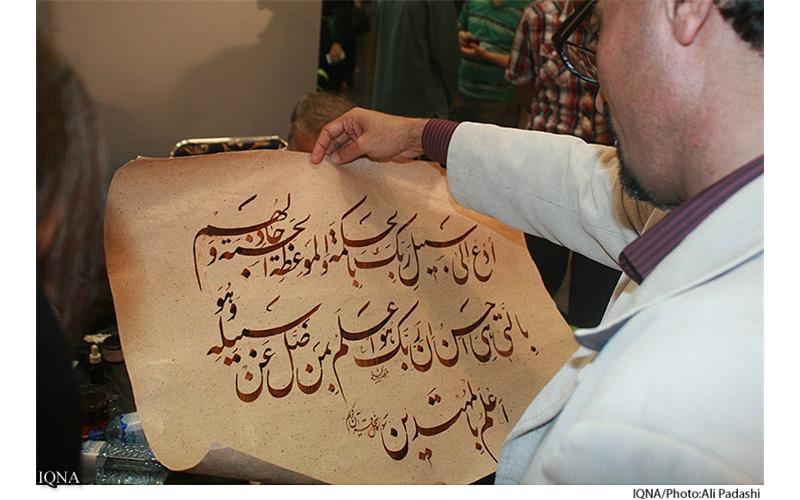 ادع الی سبیل ربک بالحکمة والموعظة الحسنة وجادلهم
بالتی هی احسن ان ربک هو اعلم بمن ضل عن سبیله وهو
اعلم بالمهتدین
IQNA
IQNA/Photo:Ali Padashi